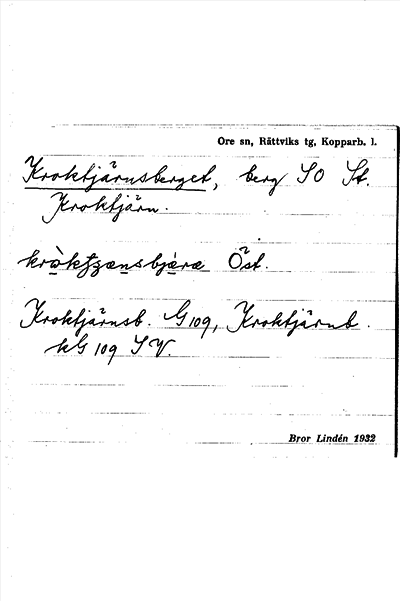 Ore sn, Rättviks tg, Kopparb. l.
Kroktjärnsberget, berg SO St.
Kroktjärn.
Öst.
Kroktjärnsb. G 109, Kroktjärnb.
kG 109 SV.
Bror Lindén 1932